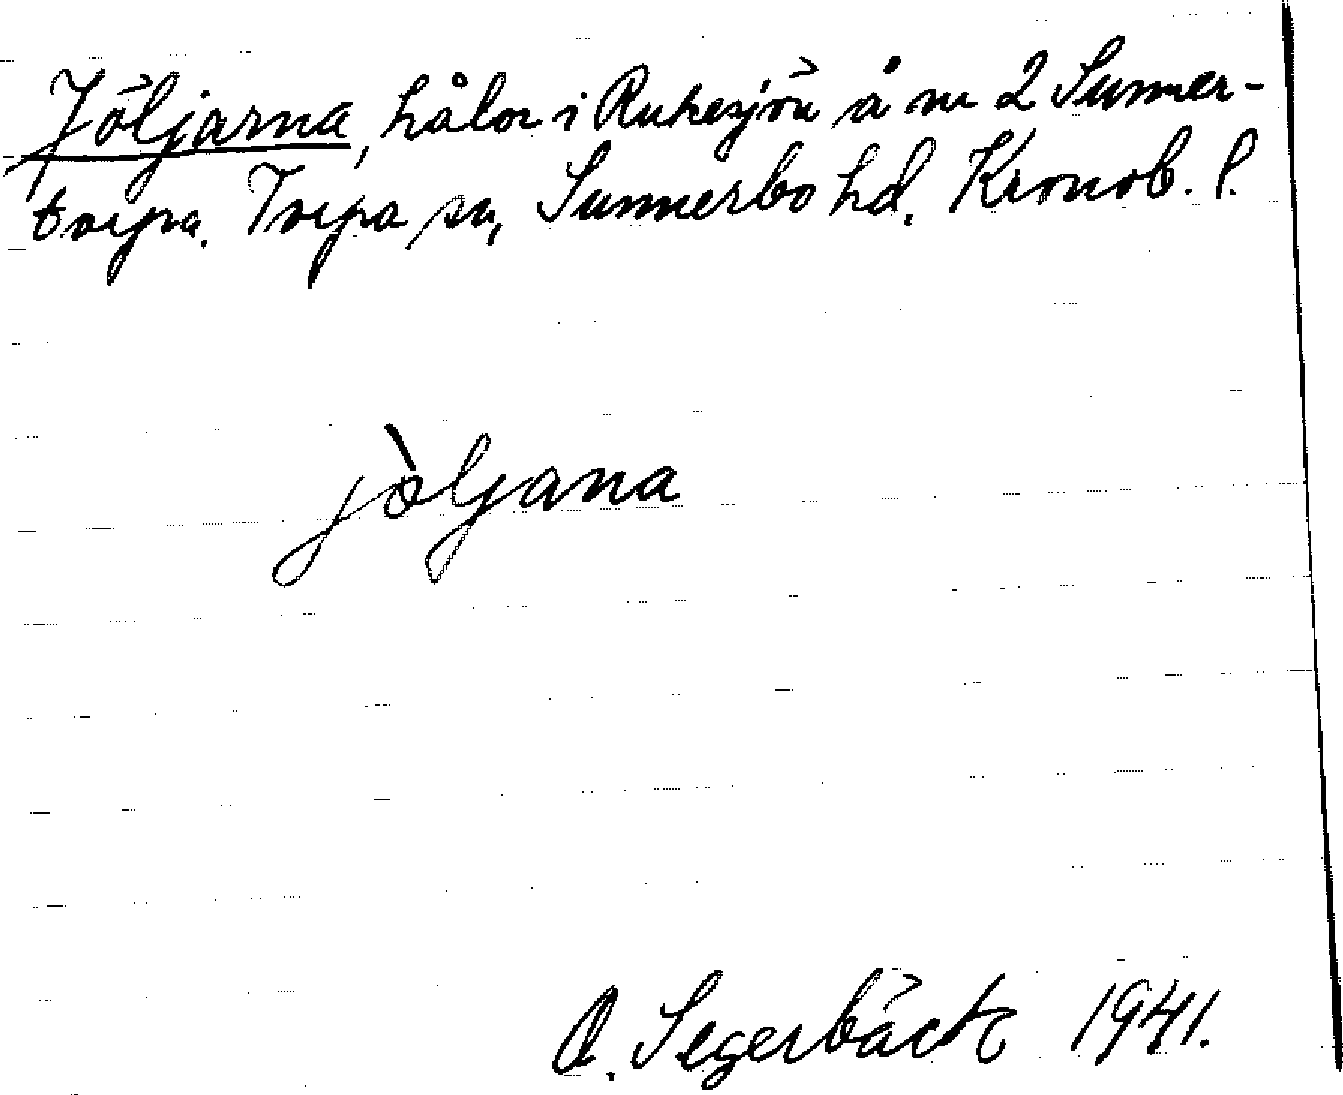 Jöljarna, hålor i Rukesjön å nr 2 Sunner-
torpa. Torpa sn, Sunnerbo hd. Kronob. l.
jòljana
O. Segerbäck 1941.